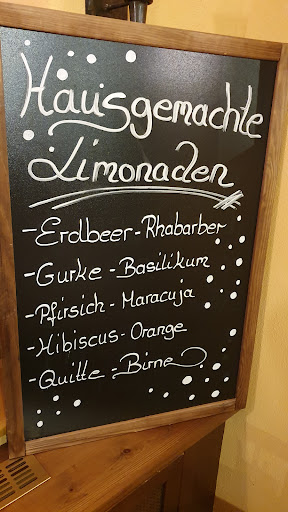 Hausgemachte
Limonaden
- Erdbeer - Rhabarber
- Gurke - Basilikum
- Pfirsich - Maracuja
- Hibiscus - Orange
- Quitte - Birne